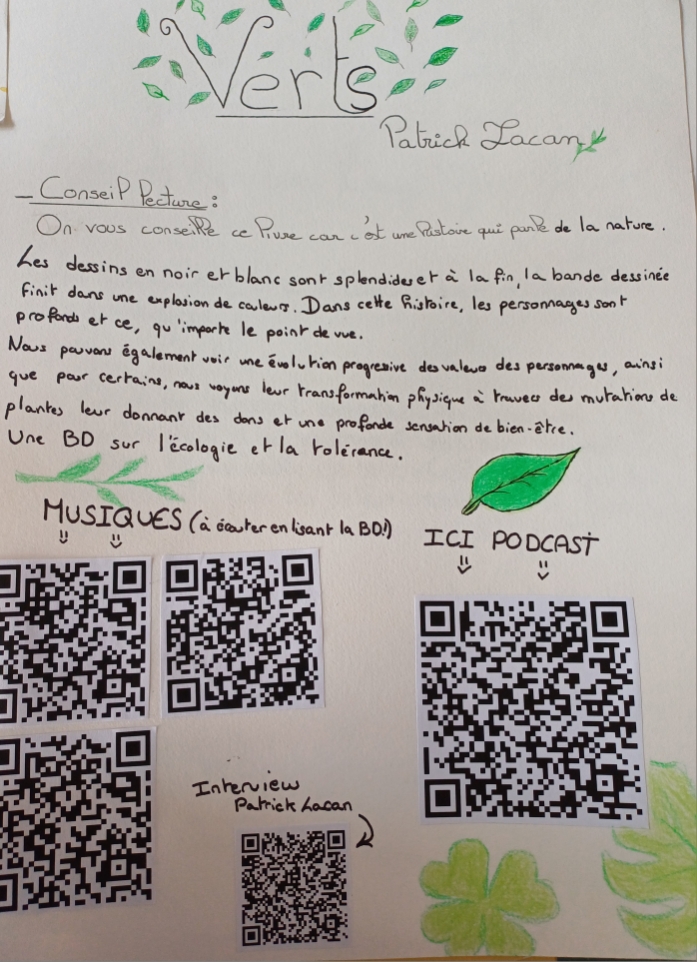 Verts
Patrick Lacan
- Conseil lecture :
On vous conseille ce livre car c'est une histoire qui parle de la nature.
Les dessins en noir et blanc sont splendides et à la fin, la bande dessinée
finit dans une explosion de couleurs. Dans cette histoire, les personnages sont
profonds et ce, qu'importe le point de vue.
Nous pouvons également voir une évolution progressive des valeurs des personnages, ainsi
que pour certains, nous voyons leur transformation physique à travers des mutations de
plantes leur donnant des dons et une profonde sensation de bien-être.
Une BD sur l'écologie et la tolérance.
MUSIQUES (à écouter en lisant la BD!)
ICI PODCAST
Interview
Patrick Lacan